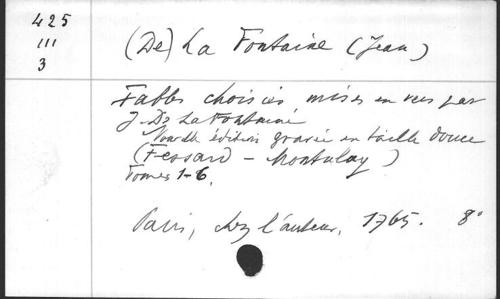 425
III
3
(De) La Fontaine (Jean)
Fables choisies mises en vers par
J. De La Fontaine
Nouvelle édition gravée en taille douce
(Fessard - Montulay)
Tomes 1-6.
Paris, chez l'auteur, 1765. 8°